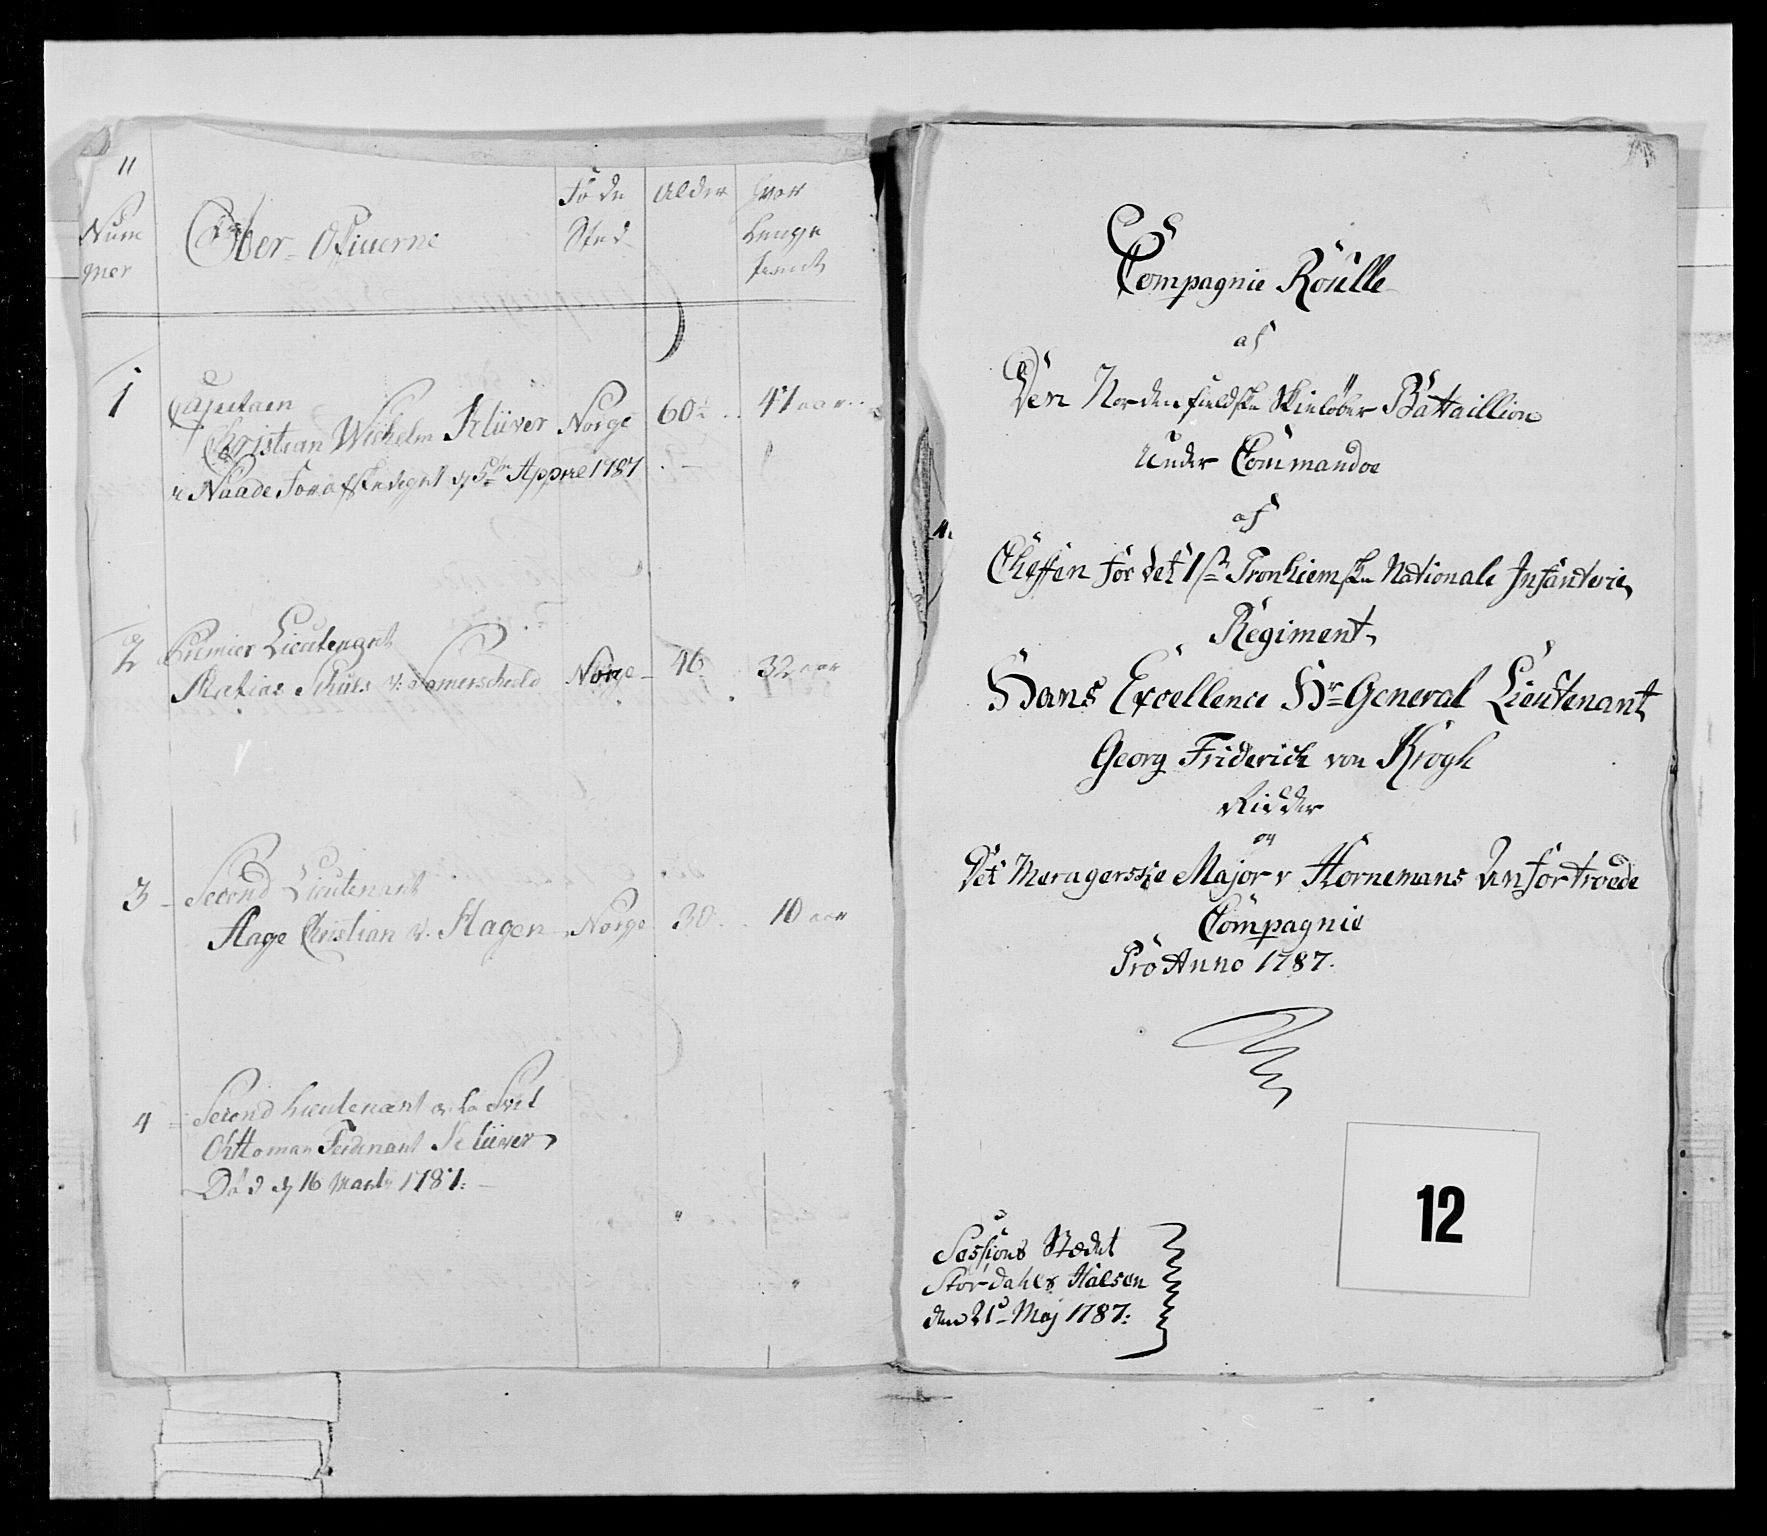 11
Num
mer
Ober-Officerne
Føde
Sted
Alder
hvor
lenge
tient
1
Capitaen
Christian Wilhelm Klüver Norge 60 41 aar
i Naade forafskediget d 5te Apprel 1787
2 Premier Lieutenant
Matias Schults v: Somerschield Norge 46 32 aar
3 Second Lieutenant
Aage Christian v. Hagen Norge 30 10 aar
4 Second Lieutenant a la Svit
Otthoman Ferdinant Klüver
Død d 16 Marts 1787.
Compagnie Roulle
af
Den Nordenfieldske Skieløber Battaillion
Under Commandoe
af
Cheffen for det 1ste Tronhiemske Nationale Infanterie
Regiment
Hans Excellence Hr General Lieutenant
Georg Friderich von Krogh
Ridder
og
Det Meragerske Major v Hornemans Anfortroede
Compagnie
Pro Anno 1787.
12
Sessions Stædet
Størdahls Halsen
den 21d Maj 1787: